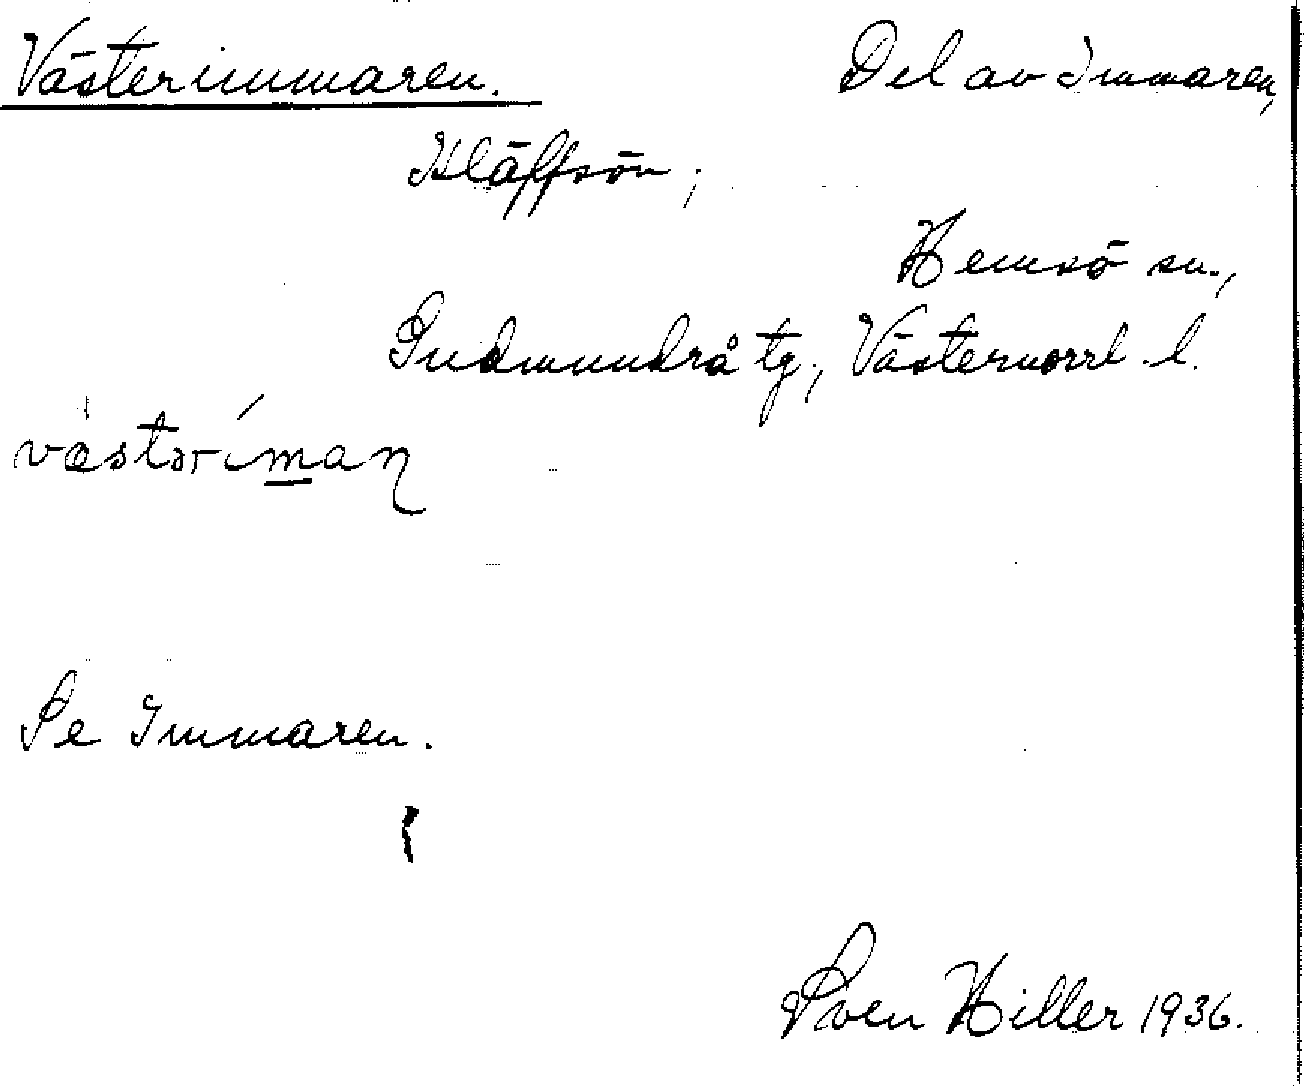 Västerimmaren. Del av Immaren,
Kläffsön;
Hemsö sn.,
Gudmundrå tg., Västernorrl. l.
västəríman
Se Immaren.
Sven Hiller 1936.